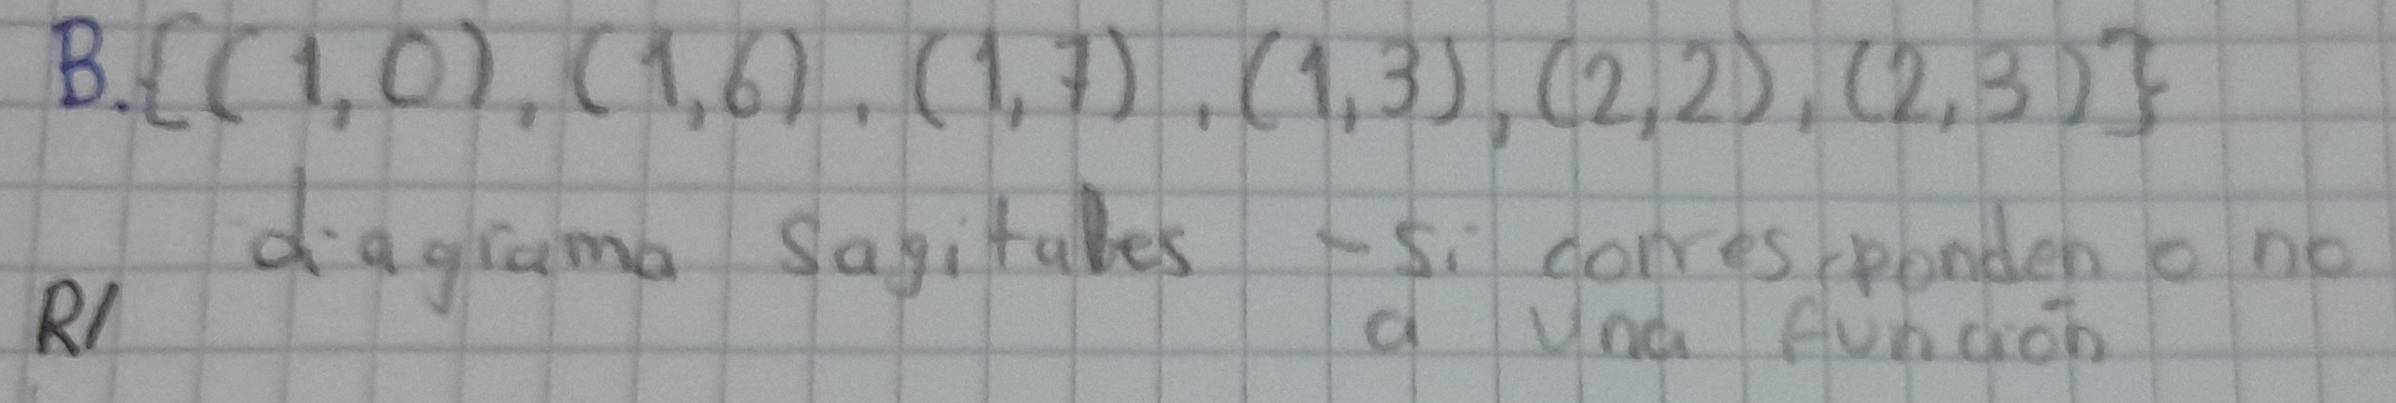 B. {(1,0), (1,6), (1,7), (1,3), (2,2), (2,3)}
diagrama Sagitales - Si corresponden o no
R/ a una función